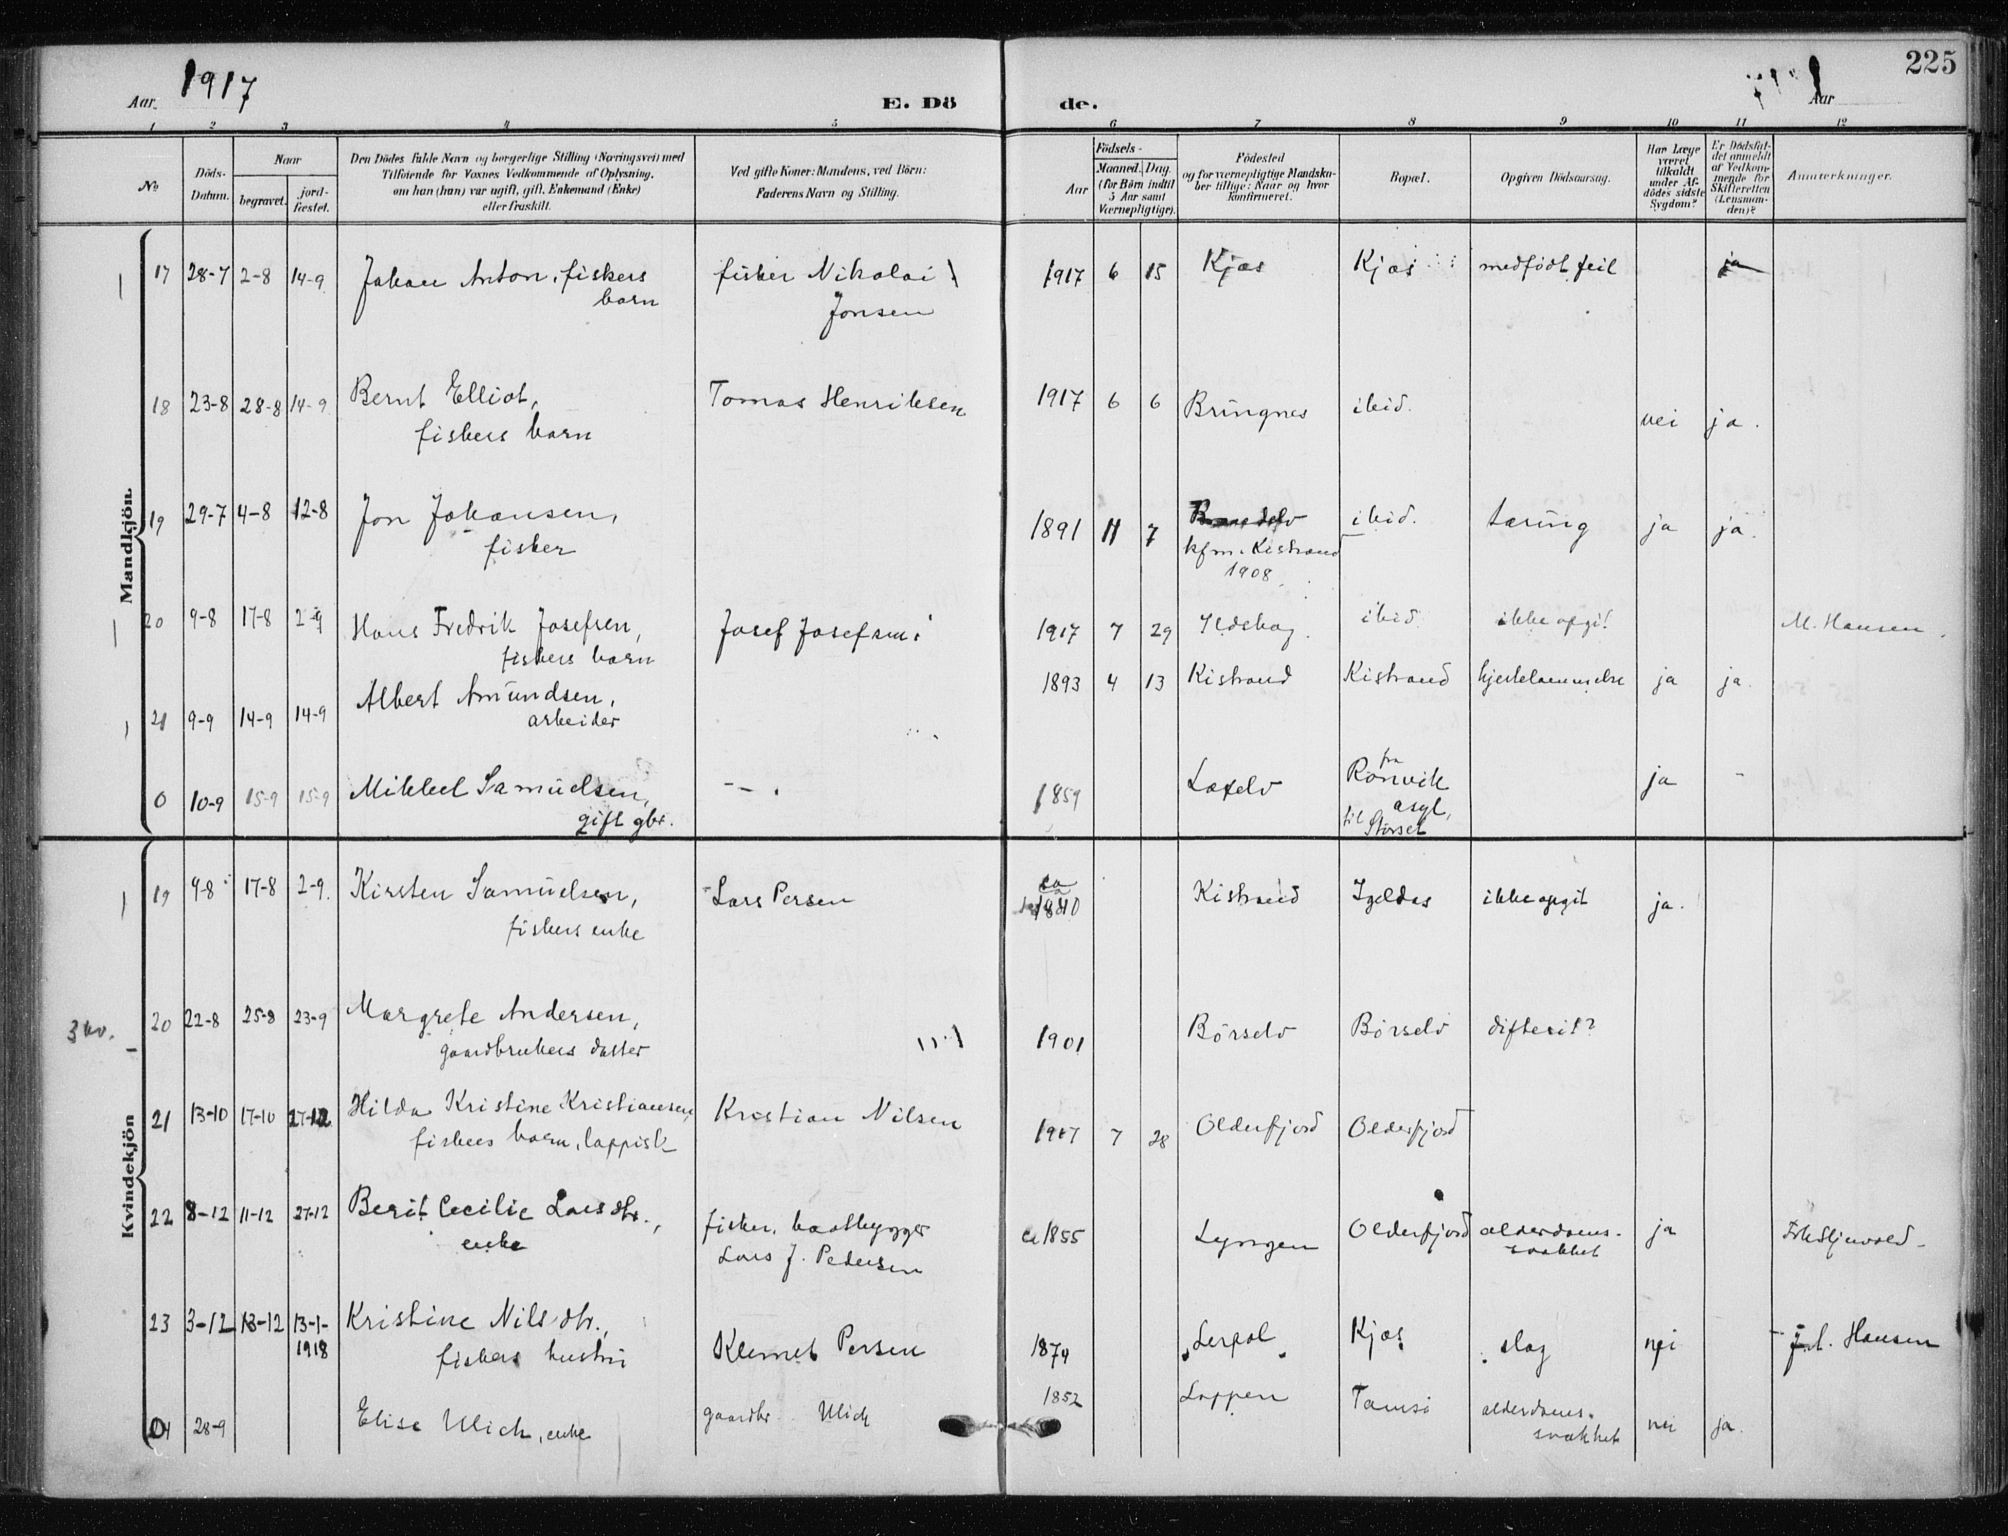 225
1917
Aar.
E. Dö
de.
Aar
1 2 3 4 5 6 7 8 9 10 11 12
No
Döds-
Datum.
Naar
begravet.
jord-
fæstet.
Den Dödes fulde Navn og borgerlige Stilling (Næringsvei) med
Tilföiende for Voxnes Vedkommende af Oplysning,
om han (hun) var ugift, gift, Enkemand (Enke)
eller fraskilt.
Ved gifte Koner: Mandens, ved Börn:
Faderens Navn og Stilling.
Födsels-
Aar
Maaned.
Dag.
(for Börn indtil
5 Aar samt
Værnepligtige).
Födested
og for værnepligtige Mandska-
ber tillige: Naar og hvor
konfirmeret.
Bopæl.
Opgiven Dödsaarsag.
Har Læge
været
tilkaldt
under Af-
dödes sidste
Sygdom?
Er Dödsfal-
det anmeldt
af Vedkom-
mende for
Skifteretten
(Lensman-
den)?
Anmærkninger.
Mandkjön.
17 28-7 2-8 14-9 Johan Anton, fiskers fisker Nikolai 1917 6 15 Kjæs Kjæs medfödt feil ja
barn Jonsen
18 23-8 28-8 14-9 Bernt Elliot, Tomas Henriksen 1917 6 6 Bringnes ibid. nei ja.
fiskers barn
19 29-7 4-8 12-8 Jon Johansen, 1891 11 7 ibid. tæring ja ja.
fisker kfm. Kistrand
1908
20 9-8 17-8 2-9 Hans Fredrik Josefsen, Josef Josefsen 1917 7 29 Ildskog. ibid. ikke opgit M. Hansen.
fiskers barn
21 9-9 14-9 14-9 Albert Amundsen, 1893 4 13 Kistrand Kistrand hjertelammelse ja ja.
arbeider
0 10-9 15-9 15-9 Mikkel Samuelsen, - - . 1859 Laxelv fra Rønvik ja -
gift gbr. asyl,
til Störset
Kvindekjön
3 kv.
19 9-8 17-8 2-9. Kirsten Samuelsen, Lars Persen ca 1840 Kistrand Igeldas ikke opgit ja.
fiskers enke
20 22-8 25-8 23-9 Margrete Andersen, 1901 Börselv Börselv difterit?
gaardbrukers datter
21 13-10 17-10 27-12 Hilda Kristine Kristiansen, Kristian Nilsen 1917 7 28 Olderfjord Olderfjord
fiskers barn, lappisk
22 8-12 11-12 27-12 Berit Cecilie Larsdtr., fisker, baatbygger ca 1855 Lyngen Olderfjord alderdoms- ja
enke Lars J. Pedersen svakhet
23 3-12 13-12 13-1- Kristine Nilsdtr., Klemet Persen 1874 Lerpol Kjæs slag nei Hansen
1918
fiskers hustru
24 28-9 Elise Ulich, enke gaardbr. Ulich 1852 Loppen Tamsö alderdoms- nei ja.
svakhet